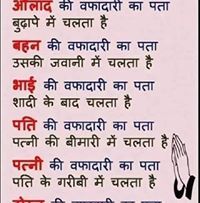 औलाद की वफादारी का पता
बुढ़ापे में चलता है
बहन की वफादारी का पता
उसकी जवानी में चलता है
भाई की वफादारी का पता
शादी के बाद चलता है
पति की वफादारी का पता
पत्नी की बीमारी में चलता है
पत्नी की वफादारी का पता
पति के गरीबी में चलता है